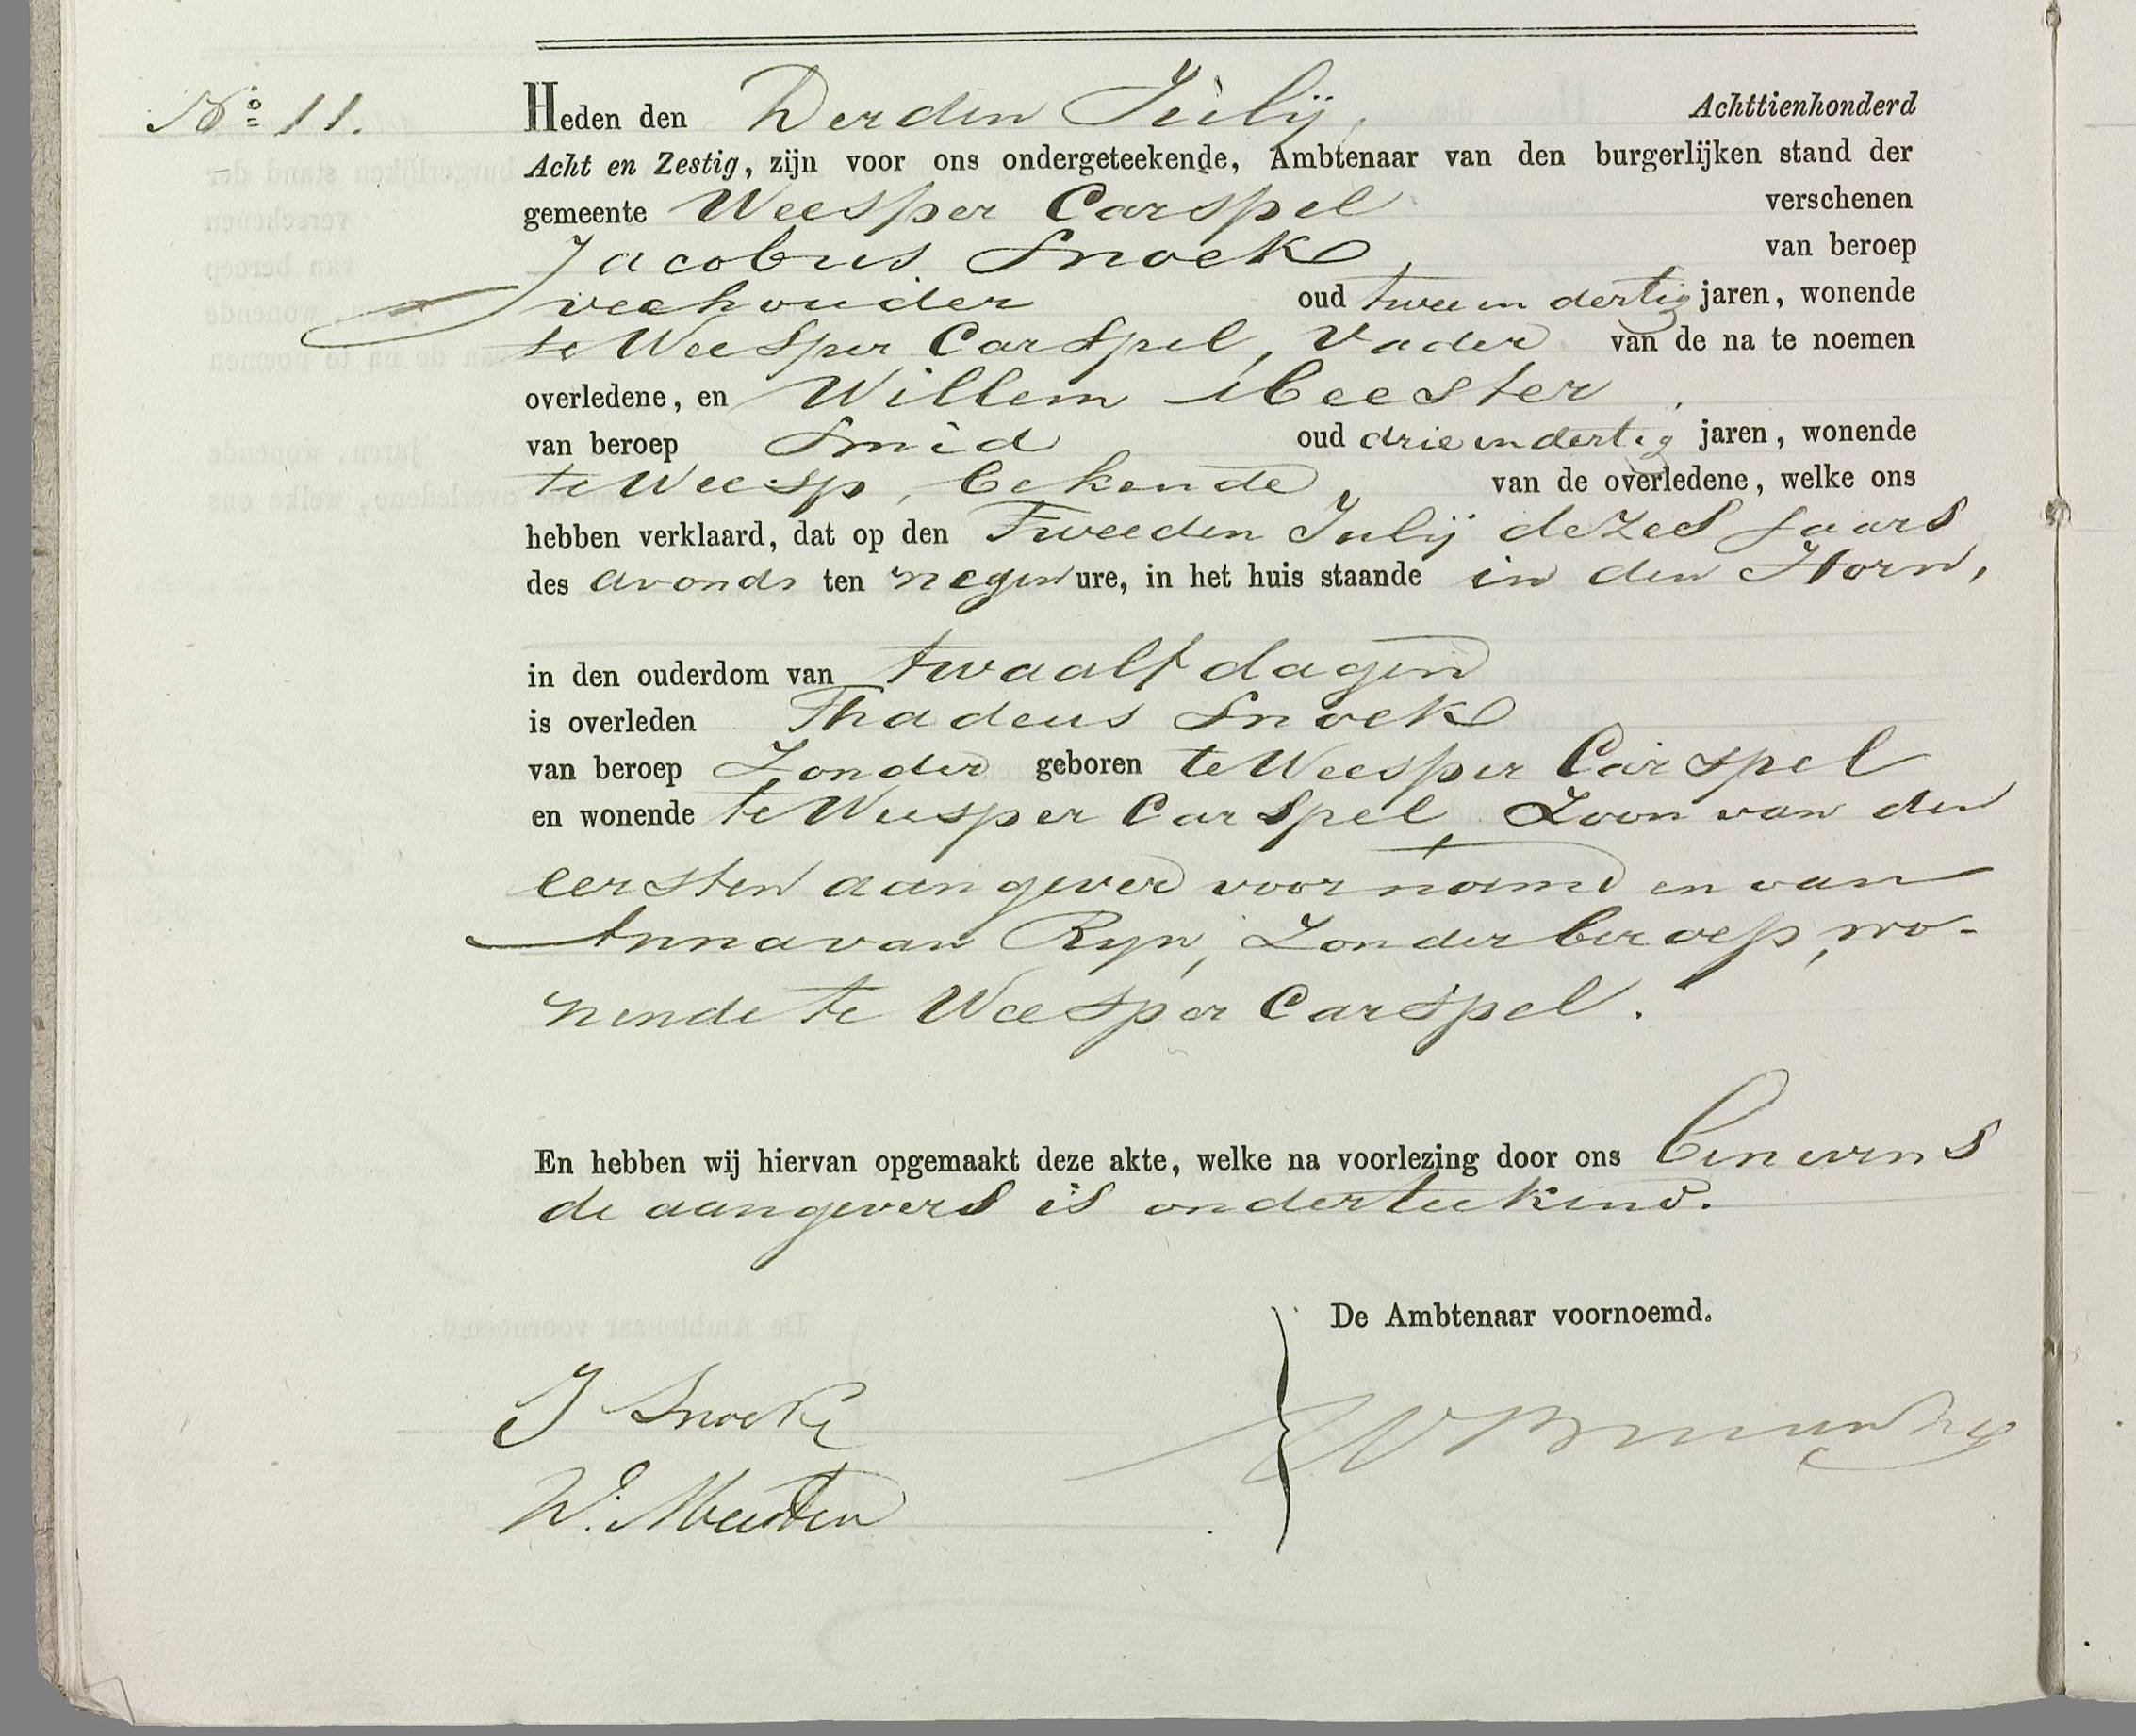 No 11.
Heden den Derden Julij, Achttienhonderd
Acht en Zestig, zijn voor ons ondergeteekende, Ambtenaar van den burgerlijken stand der
gemeente Weesper Carspel verschenen
Jacobus Snoek, van beroep
veehouder oud twee en dertig jaren, wonende
te Weesper Carspel, Vader van de na te noemen
overledene, en Willem Meester
van beroep Smid oud drie en dertig jaren, wonende
te Weesp, bekende, van de overledene, welke ons
hebben verklaard, dat op den Tweeden Julij dezes Jaars
des avonds ten negen ure, in het huis staande in den Horn,
in den ouderdom van twaalf dagen
is overleden Thadeus Snoek
van beroep Zonder geboren te Weesper Carspel
en wonende te Weesper Carspel, Zoon van den
eersten aangever voornoemd en van
Anna van Ryn, Zonder beroep, wo-
nende te Weesper Carspel.
En hebben wij hiervan opgemaakt deze akte, welke na voorlezing door ons benevens
de aangevers is onderteekend.
De Ambtenaar voornoemd.
J Snoek
W. Meester